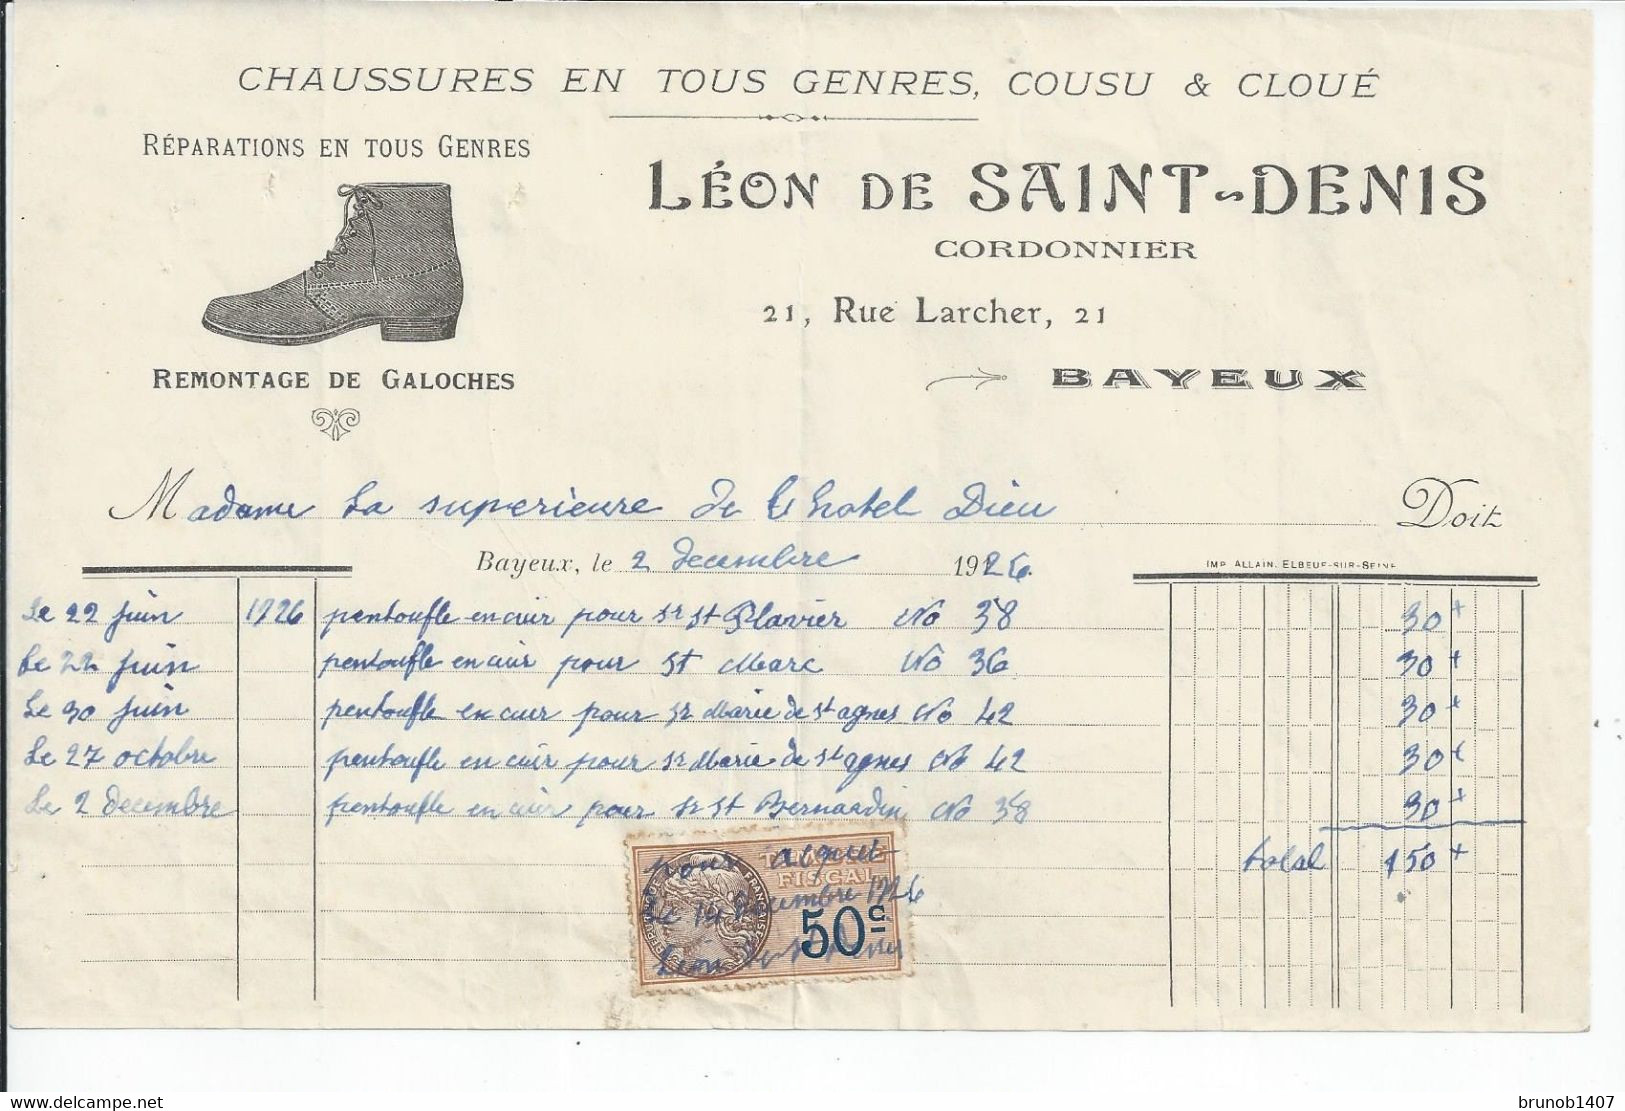 CHAUSSURES EN TOUS GENRES, COUSU & CLOUÉ
RÉPARATIONS EN TOUS GENRES
LÉON DE SAINT-DENIS
CORDONNIER
21, Rue Larcher, 21
REMONTAGE DE GALOCHES
BAYEUX
Madame La superieure de l hotel Dieu Doit
Bayeux, le 2 decembre 1926
IMP. ALLAIN. ELBEUF-SUR-SEINE
Le 22 juin 1926 pentoufle en cuir pour Sr St Flavier No 38 30
Le 22 juin pentoufle en cuir pour St Marc No 36 30
Le 30 juin pentoufle en cuir pour Sr Marie de St agnes No 42 30
Le 27 octobre pentoufle en cuir pour Sr Marie de St agnes No 42 30
Le 2 decembre pentoufle en cuir pour Sr St Bernardin No 38 30
total 150
pour aquit
TIMBRE FISCAL
RÉPUBLIQUE FRANÇAISE
Le 14 decembre 1926
50c
Léon de St Denis
www.delcampe.net
brunob1407